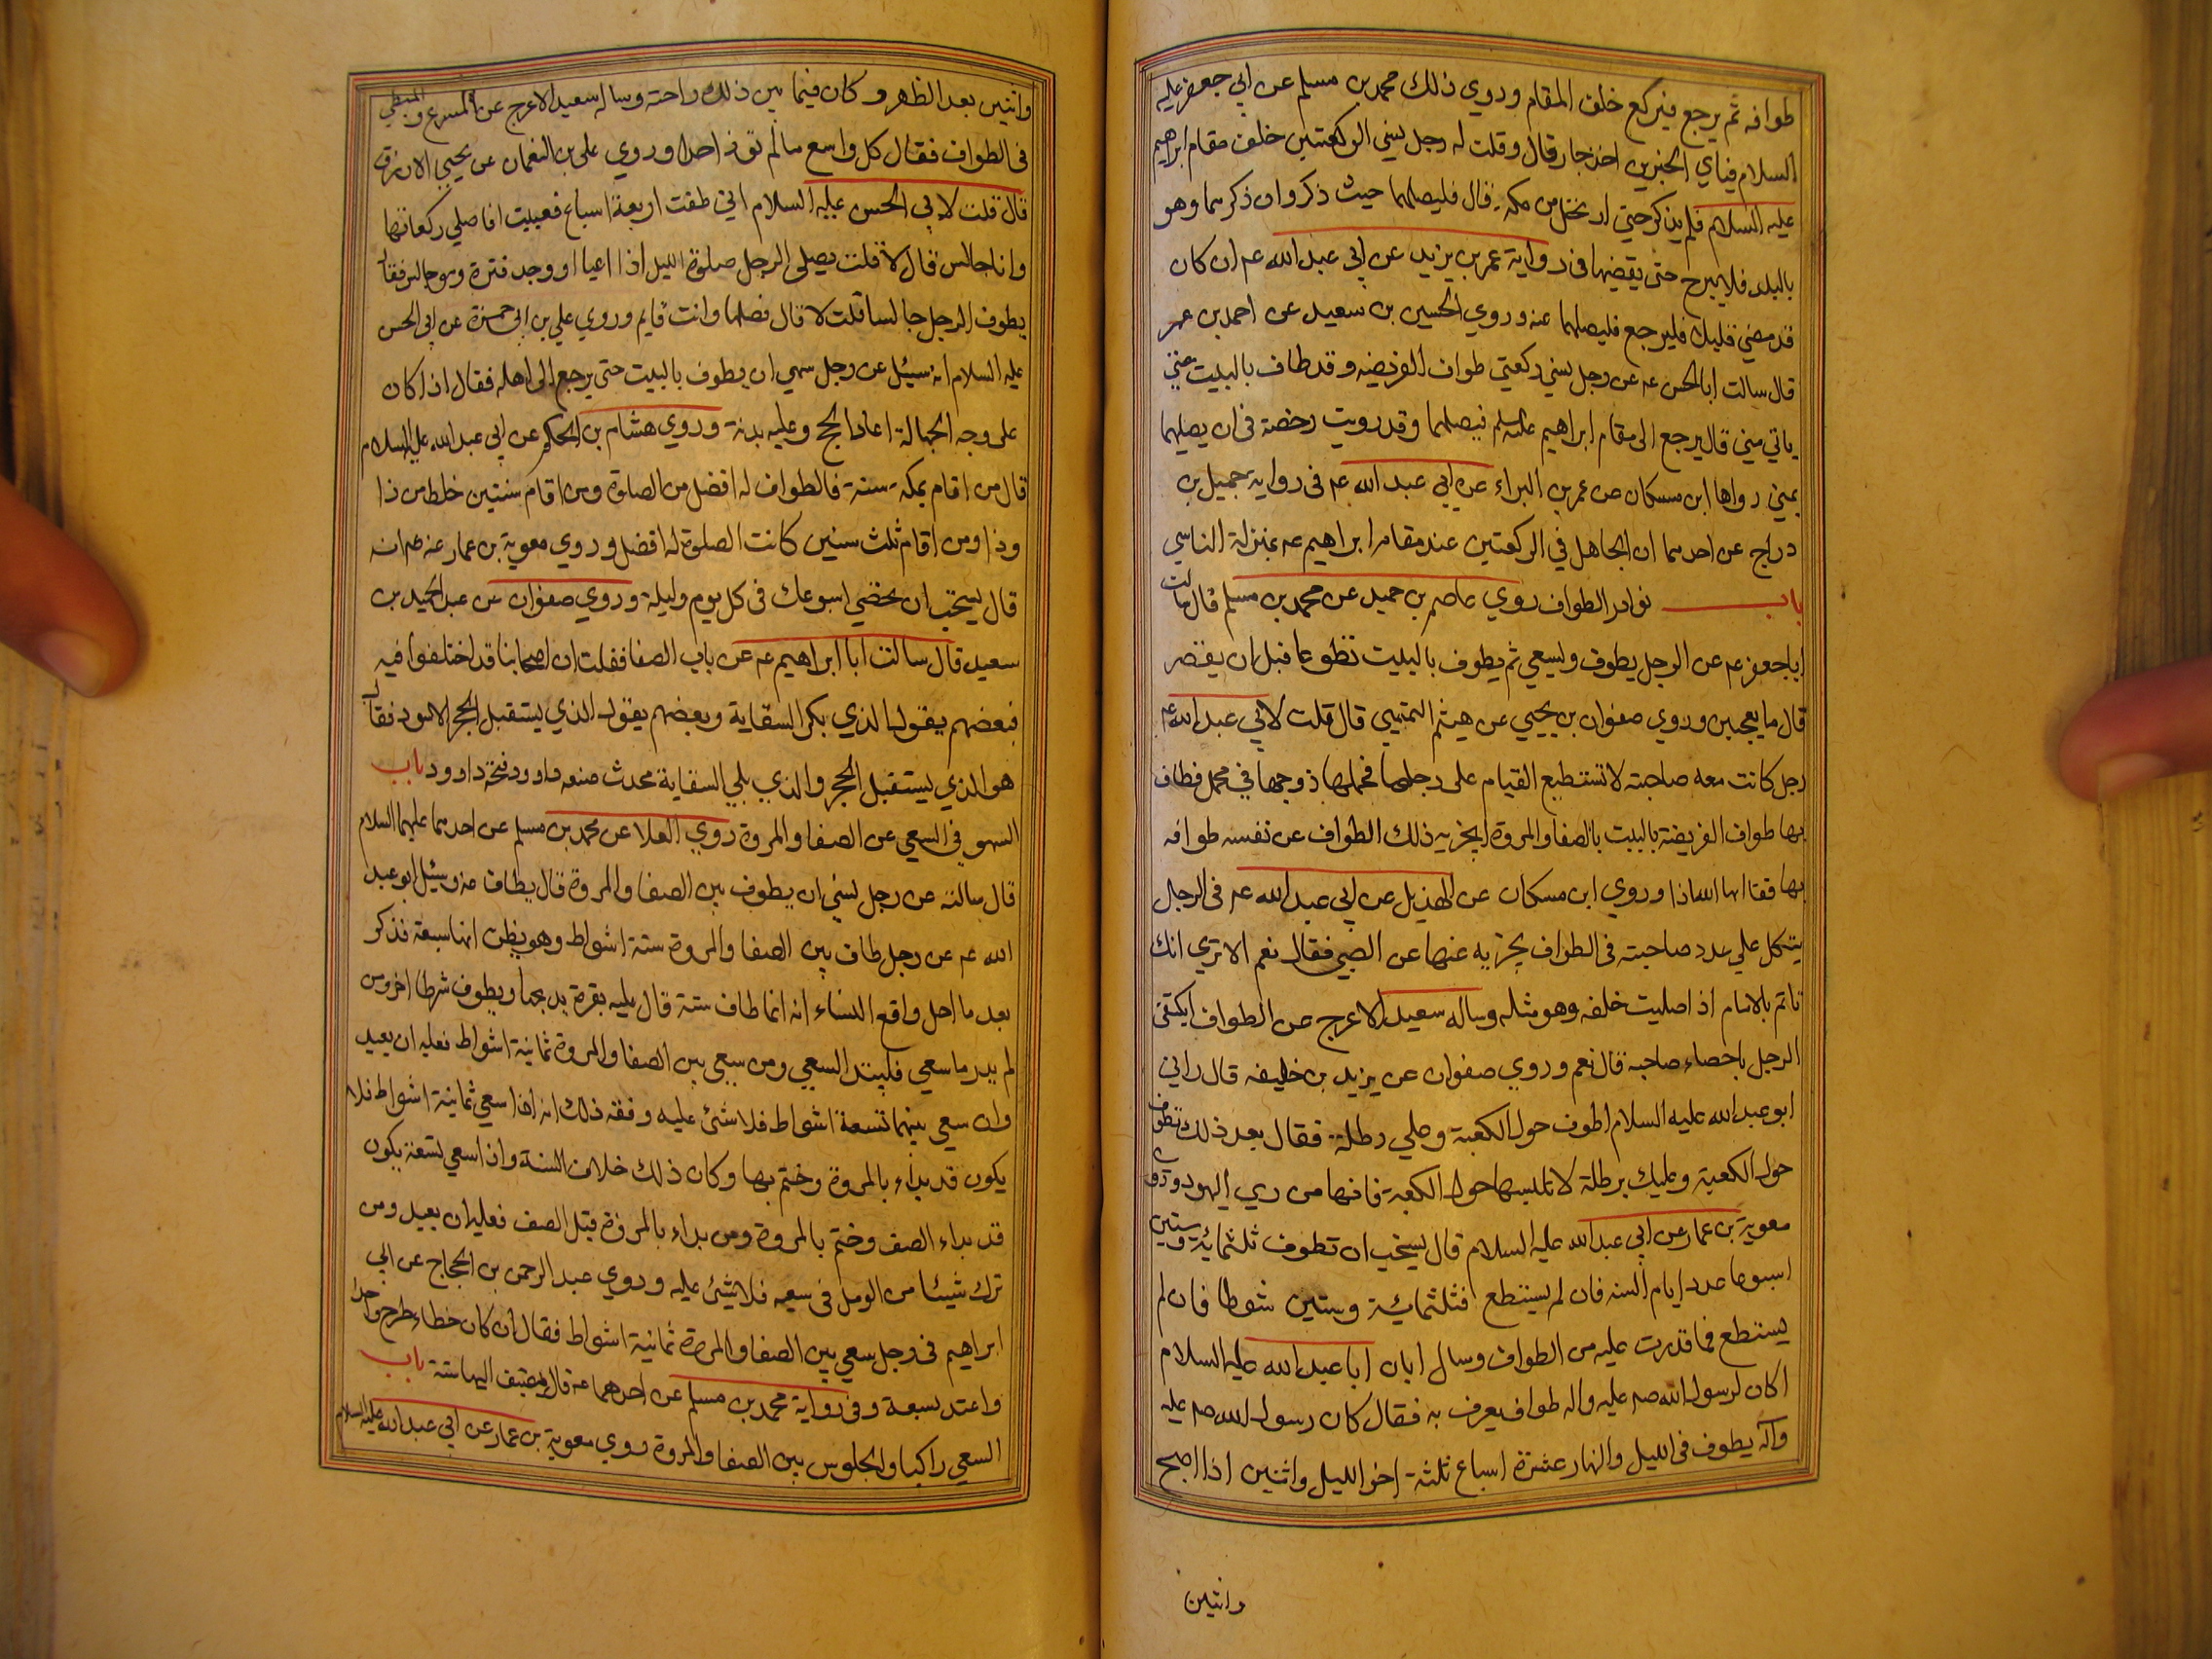 طوافه ثم يرجع فيركع خلف المقام وروي ذلك محمد بن مسلم عن ابي جعفر عليه
السلام فباي الخبرين اخذ جاز قال وقلت له رجل نسي الركعتين خلف مقام ابراهيم
عليه السلام فلم يذكر حتى ارتحل من مكة قال فليصلهما حيث ذكر وان ذكرهما وهو
بالبلد فلا يبرح حتى يقضيها في رواية عمر بن يزيد عن ابي عبد الله عم ان كان
قد مضى قليلا فليرجع فليصلهما عنه وروي الحسين بن سعيد عن احمد بن عمر
قال سالت ابا الحسن عم عن رجل نسي ركعتي طواف الفريضه وقد طاف بالبيت حتى
ياتي منى قال يرجع الى مقام ابراهيم عليه سلم فيصلهما وقد رويت رخصة في ان يصليهما
بمنى رواها ابن مسكان عن عمر بن البراء عن ابي عبد الله عم في رواية جميل بن
دراج عن احدهما ان الجاهل في الركعتين عند مقام ابراهيم عم بمنزلة الناسي
باب نوادر الطواف روي عاصم بن حميد عن محمد بن مسلم قال سالت
ابا جعفر عم عن الرجل يطوف ويسعي ثم يطوف بالبيت تطوعا قبل ان يقصر
قال ما يعجبني وروي صفوان بن يحيي عن هيثم التميمي قال قلت لابي عبد الله عم
رجل كانت معه صاحبته لا تستطيع القيام على رجلها فحملها زوجها في محمل فطاف
بها طواف الفريضة بالبيت بالصفا والمروة ايجزيه ذلك الطواف عن نفسه طوافه
بها فقا ايها الله اذا وروي ابن مسكان عن الهذيل عن ابي عبد الله عم في الرجال
يتكل علي عدد صاحبته في الطواف يجزيه عنها عن الصبي فقال نعم الا تري انك
تاتم بالامام اذا صليت خلفه وهو مثله وساله سعيد الاعرج عن الطواف ايكتفي
الرجل باحصاء صاحبه قال نعم وروي صفوان عن يزيد بن خليفه قال راني
ابو عبد الله عليه السلام اطوف حول الكعبة وعلي برطلة فقال بعد ذلك تطوف
حول الكعبة وعليك برطلة لا تلبسها حول الكعبة فانها من زي اليهود وروي
معوية بن عمار عن ابي عبد الله عليه السلام قال يستحب ان تطوف ثلثمائة وستين
اسبوعا عدد ايام السنه فان لم يستطع فثلثمائة وستين شوطا فان لم
يستطع فما قدرت عليه من الطواف وسال ابان ابا عبد الله عليه السلام
اكان لرسول الله صم عليه واله طواف يعرف به فقال كان رسول الله صم عليه
وآله يطوف في الليل والنهار عشرة اسباع ثلثة اخر الليل واثنين اذا اصبح
واثنين
واثنين بعد الظهر وكان فيما بين ذلك راحته وساله سعيد الاعرج عن المسرع والمبطي
في الطواف فقال كل واسع ما لم تؤذ احدا وروي علي بن النعمان عن يحيي الازرق
قال قلت لابي الحسن عليه السلام اني طفت اربعة اسباع فعييت افاصلي ركعاتها
وانا جالس قال لا قلت يصلي الرجل صلوة الليل اذا اعيا او وجد فترة وهو جالس فقال
يطوف الرجل جالسا قلت لا قال فصلها وانت قايم وروي علي بن ابي حمزة عن ابي الحسن
عليه السلام انه سئيل عن رجل سهي ان يطوف بالبيت حتى يرجع الى اهله فقال اذا كان
على وجه الجهالة اعاد الحج وعليه بدنة وروي هشام بن الحكم عن ابي عبد الله عليه السلام
قال من اقام بمكة سنة فالطواف له افضل من الصلوة ومن اقام سنتين خلط من ذا
وذا ومن اقام ثلث سنين كانت الصلوة له افضل وروي معوية بن عمار عنه عم انه
قال يستحب ان تحضي اسبوعك في كل يوم وليلة وروي صفوان عن عبد الحميد بن
سعيد قال سالت ابا ابراهيم عم عن باب الصفا فقلت ان اصحابنا قد اختلفوا فيه
فبعضهم يقول الذي بكر السقاية وبعضهم يقول الذي يستقبل الحجر الاسود فقال
هو الذي يستقبل الحجر والذي يلي السقاية محدث صنعه داوود فتحه داوود باب
السهو في السعي عن الصفا والمروة روي العلا عن محمد بن مسلم عن احدهما عليهما السلام
قال سالته عن رجل نسي ان يطوف بين الصفا والمروة قال يطاف عنه وسئيل ابو عبد
الله عم عن رجل طاف بين الصفا والمروة ستة اشواط وهو يظن انها سبعة فذكر
بعد ما احل واقع النساء انه انما طاف ستة قال عليه بقرة يذبحها ويطوف شوطا اخر ومن
لم يدر ما سعي فليبتد السعي ومن سعي بين الصفا والمروة ثمانية اشواط فعليه ان يعيد
وان سعي بينهما تسعة اشواط فلا شئ عليه وفقه ذلك انه اذا سعي ثمانية اشواط فلا
يكون قد بداء بالمروة وختم بها وكان ذلك خلاف السنة واذا سعي تسعة يكون
قد بداء الصف وختم بالمروة ومن بداء بالمروة قبل الصف فعليه ان يعيد ومن
ترك شيئا من الرمل في سعيه فلا شئ عليه وروي عبد الرحمن بن الحجاج عن ابي
ابراهيم في رجل سعي بين الصفا والمروة ثمانية اشواط فقال ان كان خطاء طرح واحدا
واعتد بسبعة وفي رواية محمد بن مسلم عن احدهما عم قال يضيف اليها ستة باب
السعي راكبا والجلوس بين الصفا والمروة روي معوية بن عمار عن ابي عبد الله عليه السلام